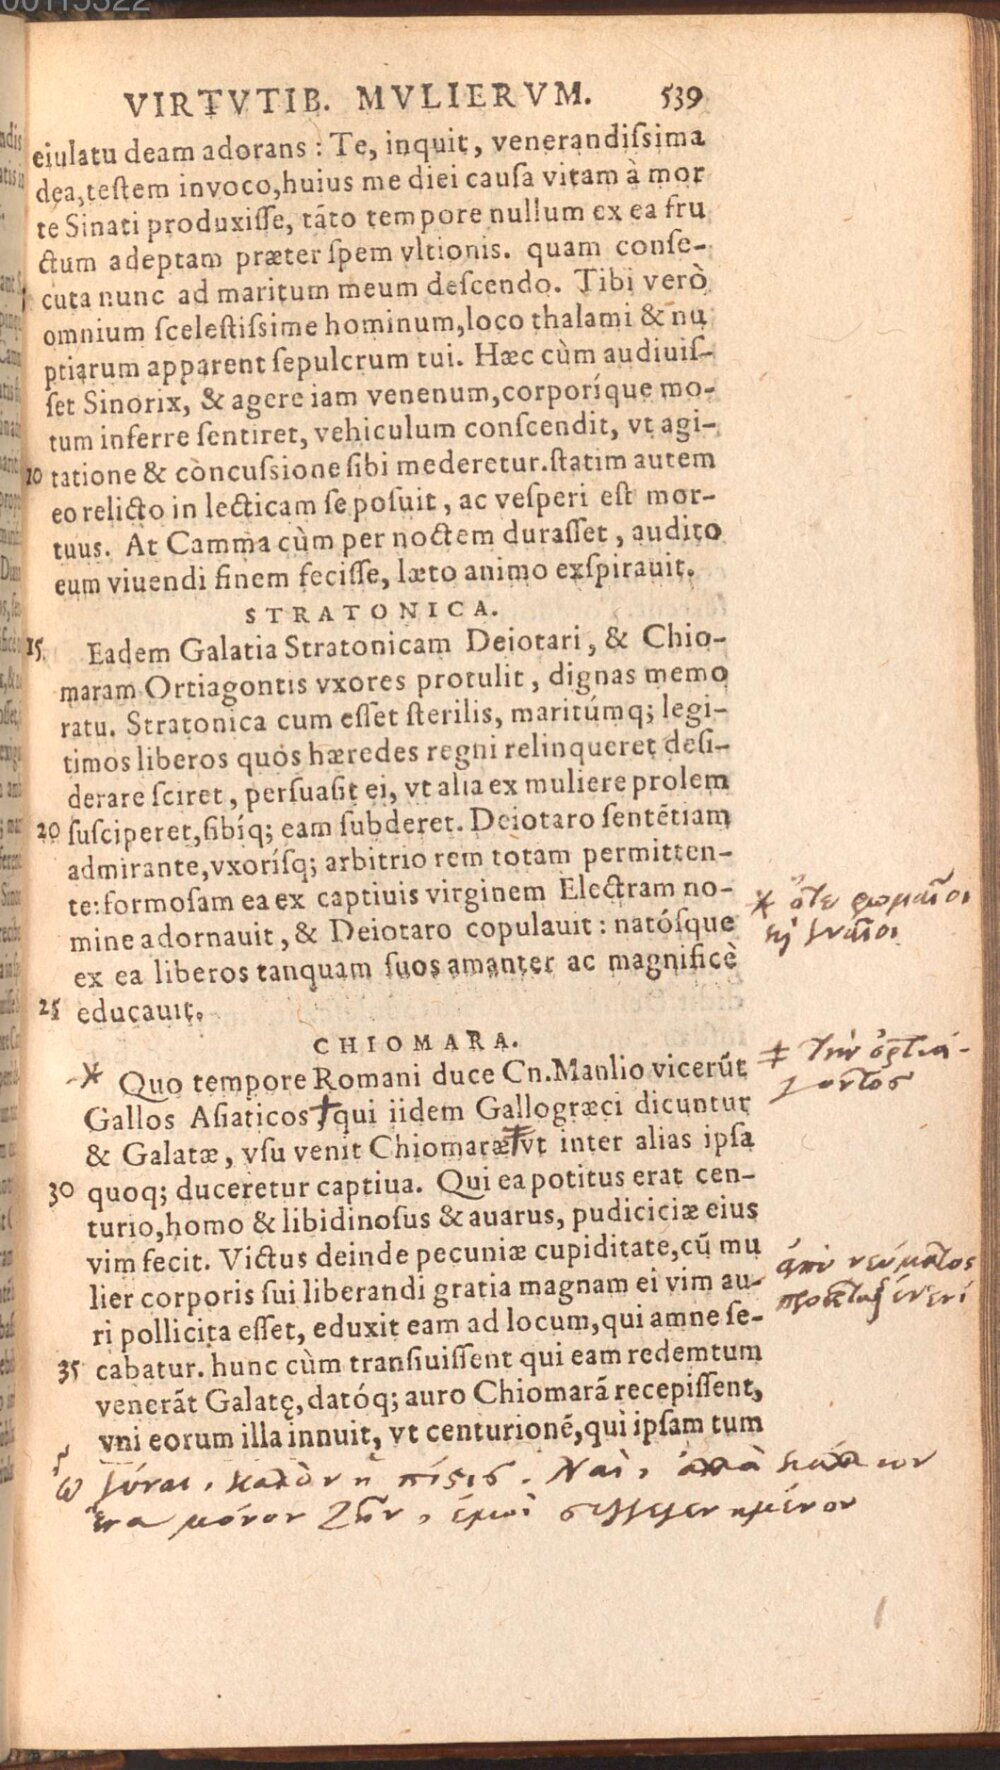 00115322
VIRTVTIB. MVLIERVM. 539
eiulatu deam adorans : Te, inquit, venerandiſsima
dea, teſtem invoco, huius me diei cauſa vitam à mor
te Sinati produxiſſe, tāto tempore nullum ex ea fru
ctum adeptam præter ſpem vltionis. quam conſe-
cuta nunc ad maritum meum deſcendo. Tibi verò
omnium ſceleſtiſsime hominum, loco thalami & nu
ptiarum apparent ſepulcrum tui. Hæc cùm audiuiſ-
ſet Sinorix, & agere iam venenum, corporíque mo-
tum inferre ſentiret, vehiculum conſcendit, vt agi-
10 tatione & concuſsione ſibi mederetur. ſtatim autem
eo relicto in lecticam ſe poſuit, ac veſperi eſt mor-
tuus. At Camma cùm per noctem duraſſet, audito
eum viuendi finem feciſſe, læto animo exſpirauit.
STRATONICA.
15 Eadem Galatia Stratonicam Deiotari, & Chio-
maram Ortiagontis vxores protulit, dignas memo
ratu. Stratonica cum eſſet ſterilis, maritúmq; legi-
timos liberos quos hæredes regni relinqueret deſi-
derare ſciret, perſuaſit ei, vt alia ex muliere prolem
20 ſuſciperet, ſibíq; eam ſubderet. Deiotaro ſentētiam
admirante, vxoríſq; arbitrio rem totam permitten-
te: formoſam ea ex captiuis virginem Electram no-
mine adornauit, & Deiotaro copulauit : natóſque
ex ea liberos tanquam ſuos amanter ac magnificè
25 educauit.
* ὅτε ῥωμαῖοι
CHIOMARA.
* Quo tempore Romani duce Cn. Manlio vicerūt
Gallos Aſiaticos † qui iidem Gallogræci dicuntur
& Galatæ, vſu venit Chiomaræ ‡ vt inter alias ipſa
30 quoq; duceretur captiua. Qui ea potitus erat cen-
turio, homo & libidinoſus & auarus, pudiciciæ eius
vim fecit. Victus deinde pecuniæ cupiditate, cū mu
lier corporis ſui liberandi gratia magnam ei vim au-
ri pollicita eſſet, eduxit eam ad locum, qui amne ſe-
35 cabatur. hunc cùm tranſiuiſſent qui eam redemtum
venerāt Galatę, datóq; auro Chiomarā recepiſſent,
vni eorum illa innuit, vt centurionē, qui ipſam tum
‡ τὴν ὀρτιά-
γοντος
ἀπὸ νεύματος
προσέταξεν ἑνὶ
ὦ γύναι, καλὸν ἡ πίστις. Ναὶ, ἀλλὰ κάλλιον
ἕνα μόνον ζῆν, ἐμοὶ συγγεγενημένον